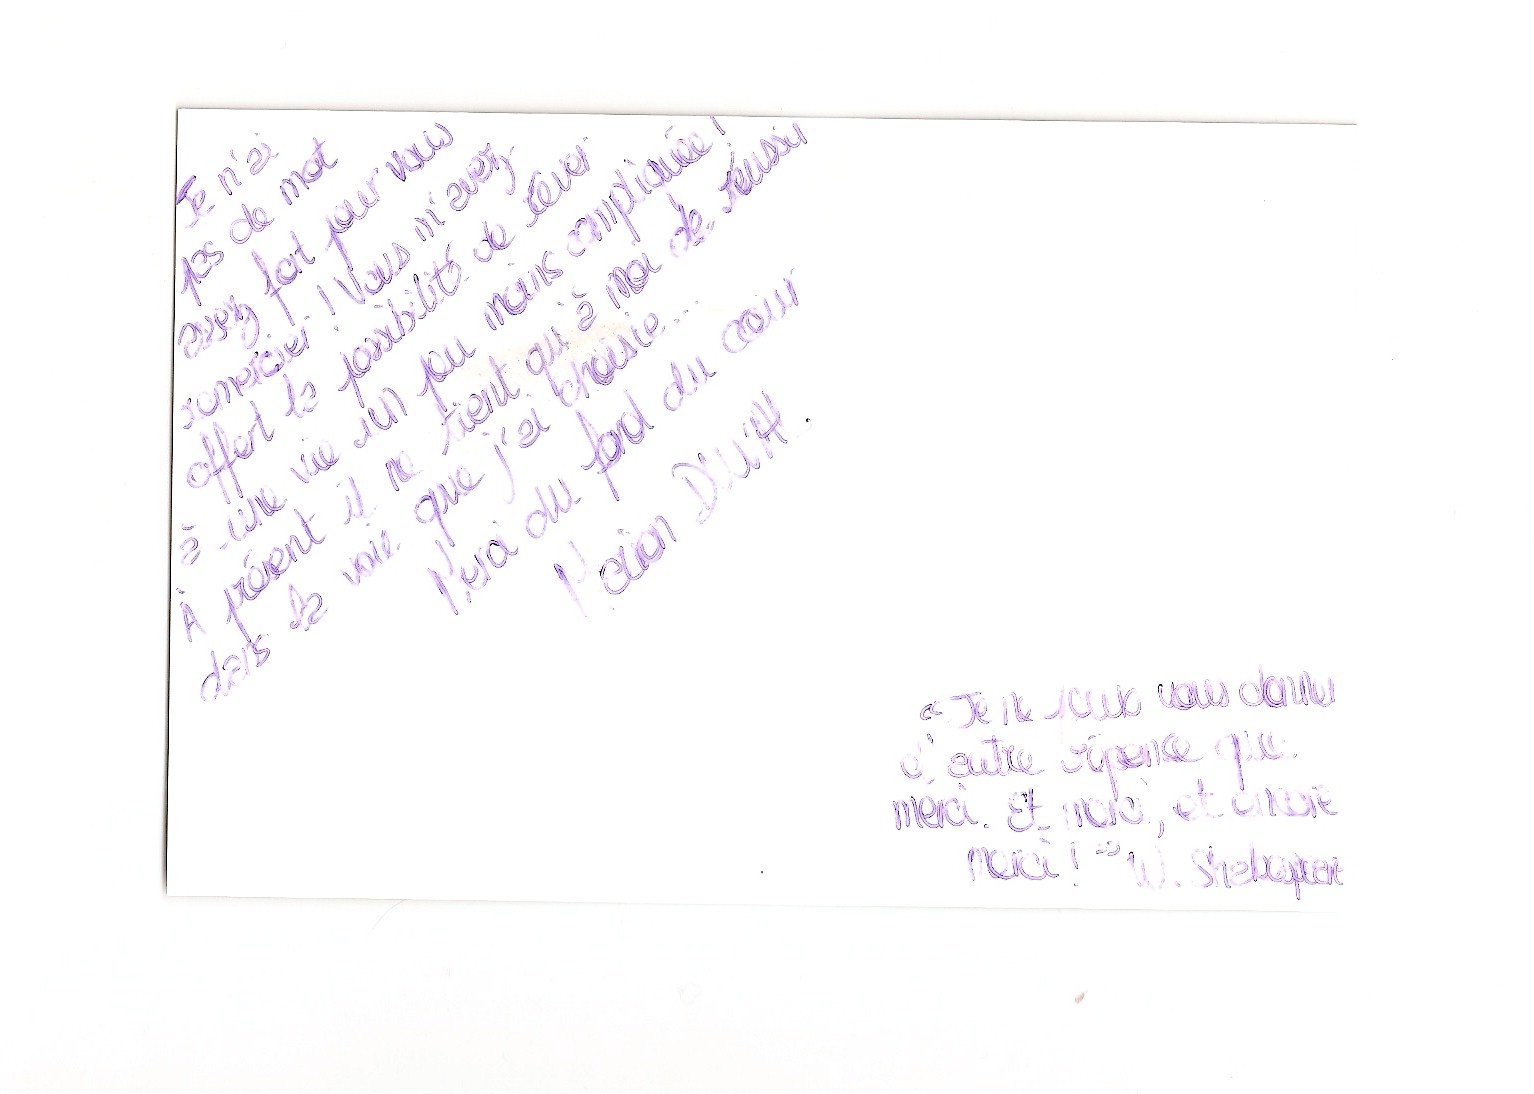 Je n'ai
pas de mot
assez fort pour vous
remercier ! Vous m'avez
offert la possibilité de rêver
à une vie un peu moins compliquée !
À présent il ne tient qu'à moi de réussir
dans la voie que j'ai choisie...
Merci du fond du cœur
Marion
« Je ne peux vous donner
d'autre réponse que
merci. Et merci, et encore
merci ! » W. Shakespeare